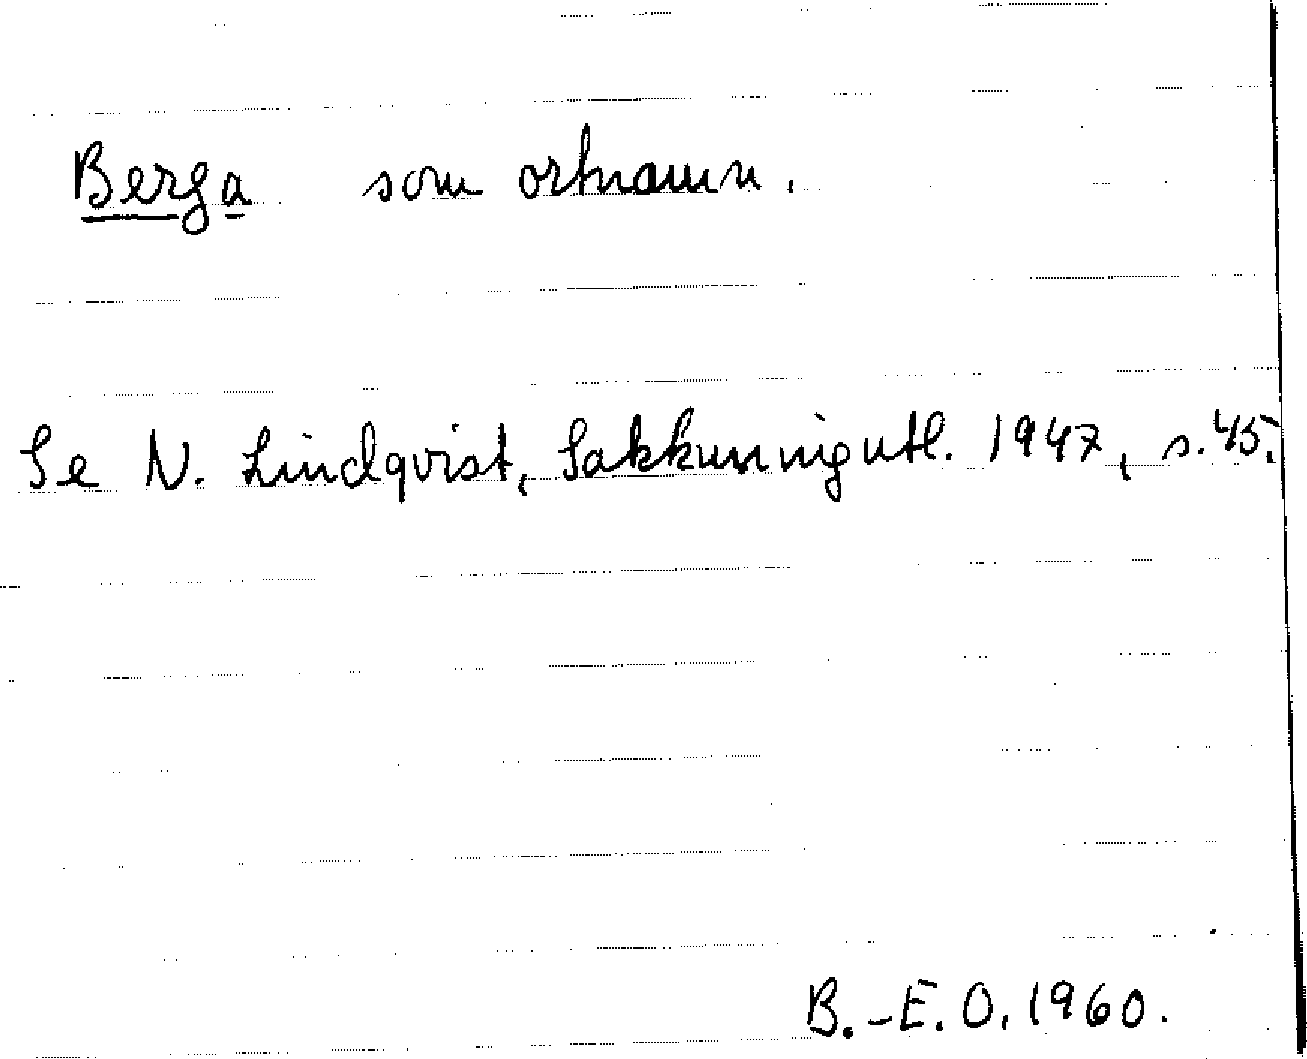 Berga som ortnamn.
Se N. Lindqvist, Sakkunnigutl. 1947, s. 45.
B.-E. O. 1960.